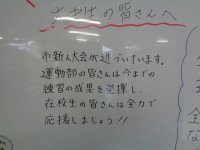 の皆さんへ
市新人大会が近づいています。
運動部の皆さんは今までの
練習の成果を発揮し、
在校生の皆さんは全力で
応援しましょう!!